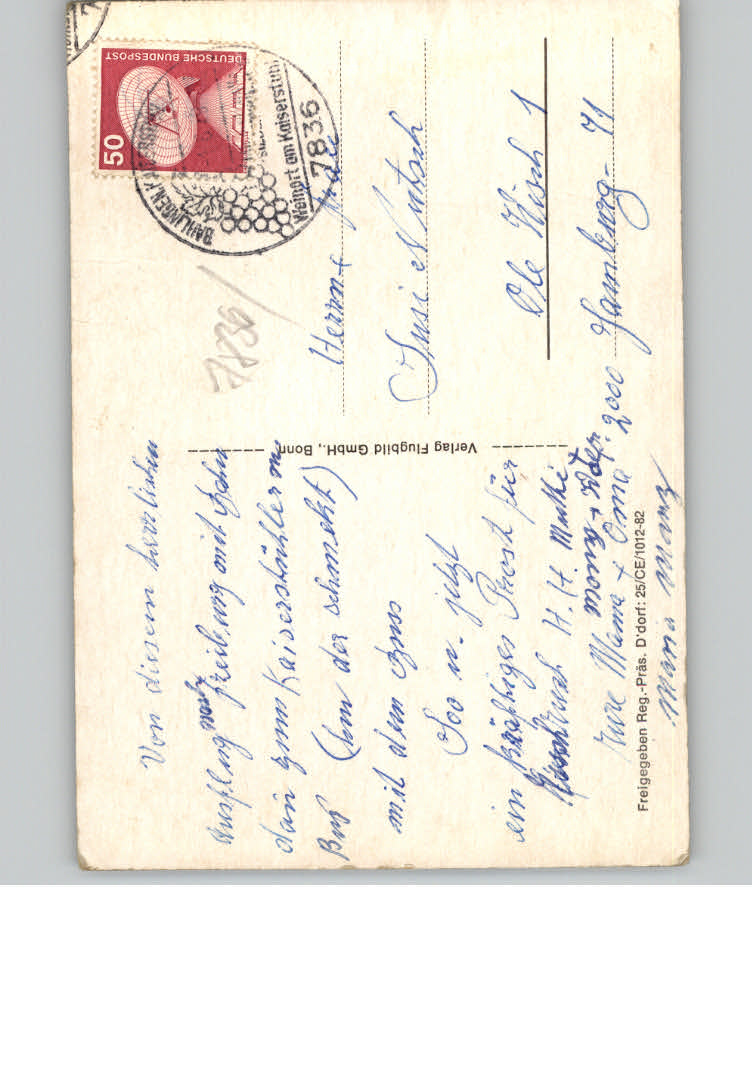 Von diesem herrlichen
Ausflug nach Freiburg mit Bahn
dann zum Kaiserstühler
Bus (hm der schmeckt)
mit dem Bus
Soo u. jetzt
ein kräftiges Prost für
H. H. Mutti
Eure Mama + Oma
Maria
Freigegeben Reg.-Präs. D'dorf: 25/CE/1012-82
Verlag Flugbild GmbH., Bonn
DEUTSCHE BUNDESPOST
50
BAHLINGEN, KAISERSTUHL
Weinort am Kaiserstuhl
7836
7836
Herrn +
Susi Nutsch
Ole Wisch 1
2000 Hamburg - 71